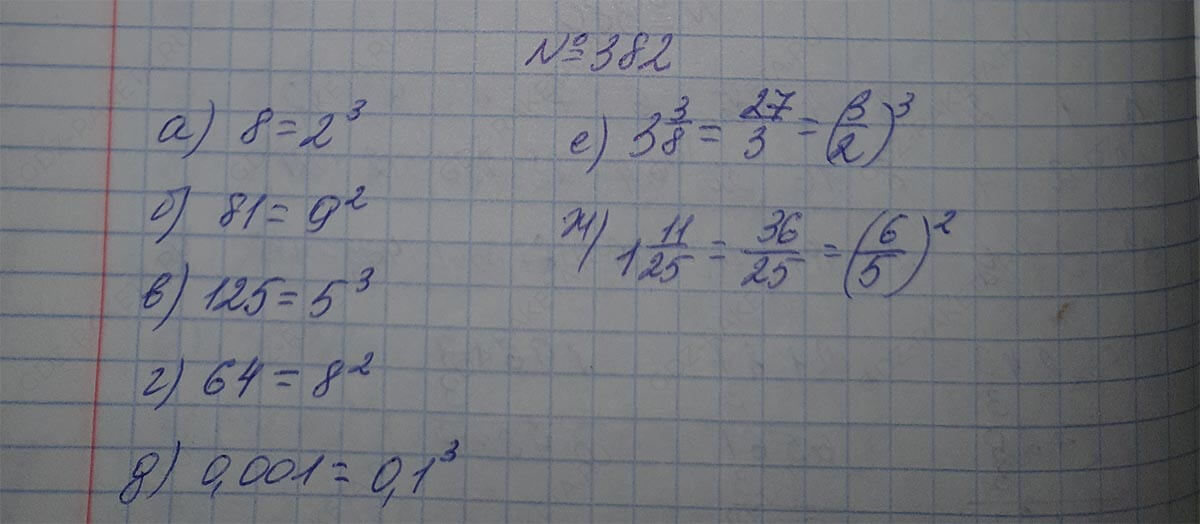 №382
а) 8 = 2³
б) 81 = 9²
в) 125 = 5³
г) 64 = 8²
д) 0,001 = 0,1³
е) 3 3/8 = 27/3 = (3/2)³
ж) 1 11/25 = 36/25 = (6/5)²